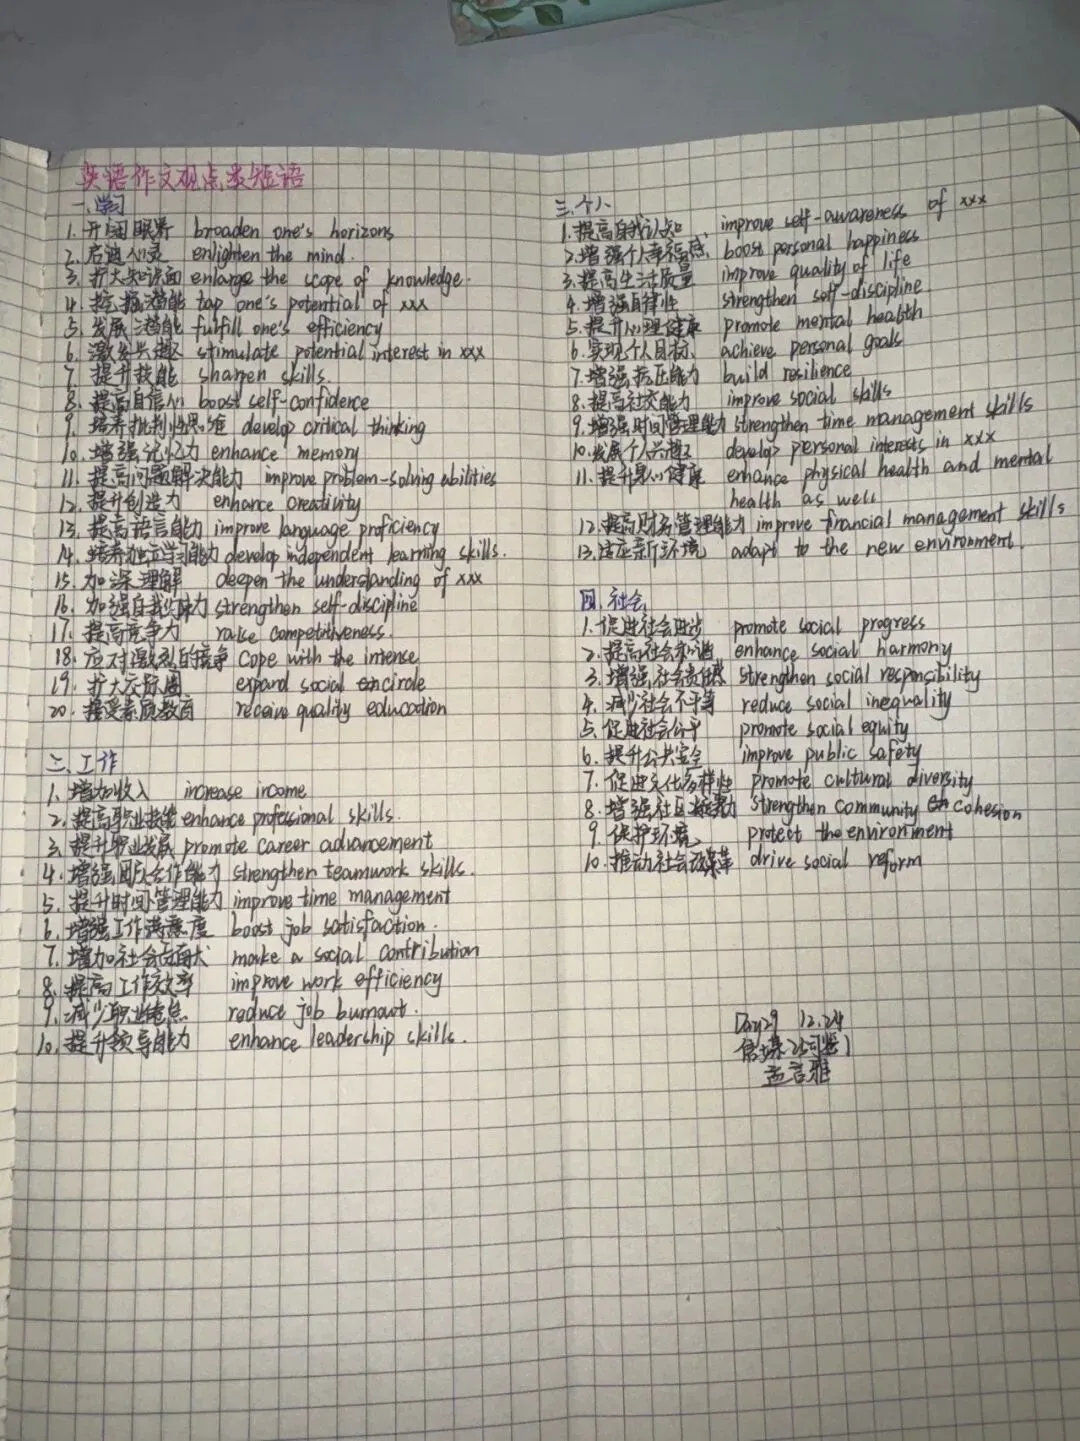 英语作文观点类短语
一、学习
1. 开阔眼界 broaden one's horizons
2. 启迪心灵 enlighten the mind.
3. 扩大知识面 enlarge the scope of knowledge.
4. 挖掘潜能 tap one's potential of xxx
5. 发展潜能 fulfill one's efficiency
6. 激发兴趣 stimulate potential interest in xxx
7. 提升技能 sharpen skills.
8. 提高自信心 boost self-confidence
9. 培养批判性思维 develop critical thinking
10. 增强记忆力 enhance memory
11. 提高问题解决能力 improve problem-solving abilities
12. 提升创造力 enhance creativity
13. 提高语言能力 improve language proficiency
14. 培养独立学习能力 develop independent learning skills.
15. 加深理解 deepen the understanding of xxx
16. 加强自我约束力 strengthen self-discipline
17. 提高竞争力 raise competitiveness.
18. 应对激烈的竞争 cope with the intense
19. 扩大交际圈 expand social circle
20. 接受素质教育 receive quality education
二、工作
1. 增加收入 increase income
2. 提高职业技能 enhance professional skills.
3. 提升职业发展 promote career advancement
4. 增强团队合作能力 strengthen teamwork skills.
5. 提升时间管理能力 improve time management
6. 增强工作满意度 boost job satisfaction.
7. 增加社会贡献 make a social contribution
8. 提高工作效率 improve work efficiency
9. 减少职业倦怠 reduce job burnout.
10. 提升领导能力 enhance leadership skills.
三、个人
1. 提高自我认知 improve self-awareness of xxx
2. 增强个人幸福感 boost personal happiness
3. 提高生活质量 improve quality of life
4. 增强自律性 strengthen self-discipline
5. 提升心理健康 promote mental health
6. 实现个人目标 achieve personal goals
7. 增强抗压能力 build resilience
8. 提高社交能力 improve social skills
9. 增强时间管理能力 strengthen time management skills
10. 发展个人兴趣 develop personal interests in xxx
11. 提升身心健康 enhance physical health and mental
health as well
12. 提高财务管理能力 improve financial management skills
13. 适应新环境 adapt to the new environment.
四、社会
1. 促进社会进步 promote social progress
2. 提高社会和谐 enhance social harmony
3. 增强社会责任感 strengthen social responsibility
4. 减少社会不平等 reduce social inequality
5. 促进社会公平 promote social equity
6. 提升公共安全 improve public safety
7. 促进文化多样性 promote cultural diversity
8. 增强社区凝聚力 strengthen community cohesion
9. 保护环境 protect the environment
10. 推动社会改革 drive social reform
Day29 12.24
孟言雅